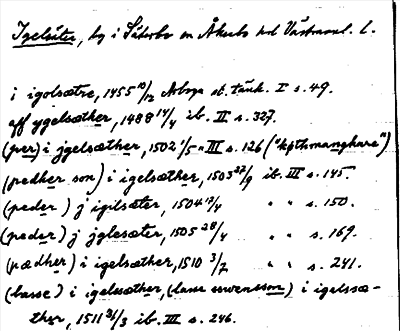 Igelsäter, by i Säterbo sn Åkerbo hd Västmanl. l.
i igolsætre, 1455 10/12 Arboga st. tänk. I s. 49.
aff ygelsæther, 1488 14/4 ib. II s. 327.
(per) i jgelsæther, 1502 1/5 " III s. 126 ("köpthmanghare")
(pedher son) i igelsæther, 1503 27/9 ib. III s. 145.
(peder) j igilsæter, 1504 13/4 " " s. 150.
(peder) j jglesæter, 1505 28/4 " " s. 169.
(pædher) i igelsæther, 1510 3/7 " " s. 241.
(lasse) i igelssæther, (lann swensson) i igelssæ-
ther, 1511 31/3 ib. III s. 246.